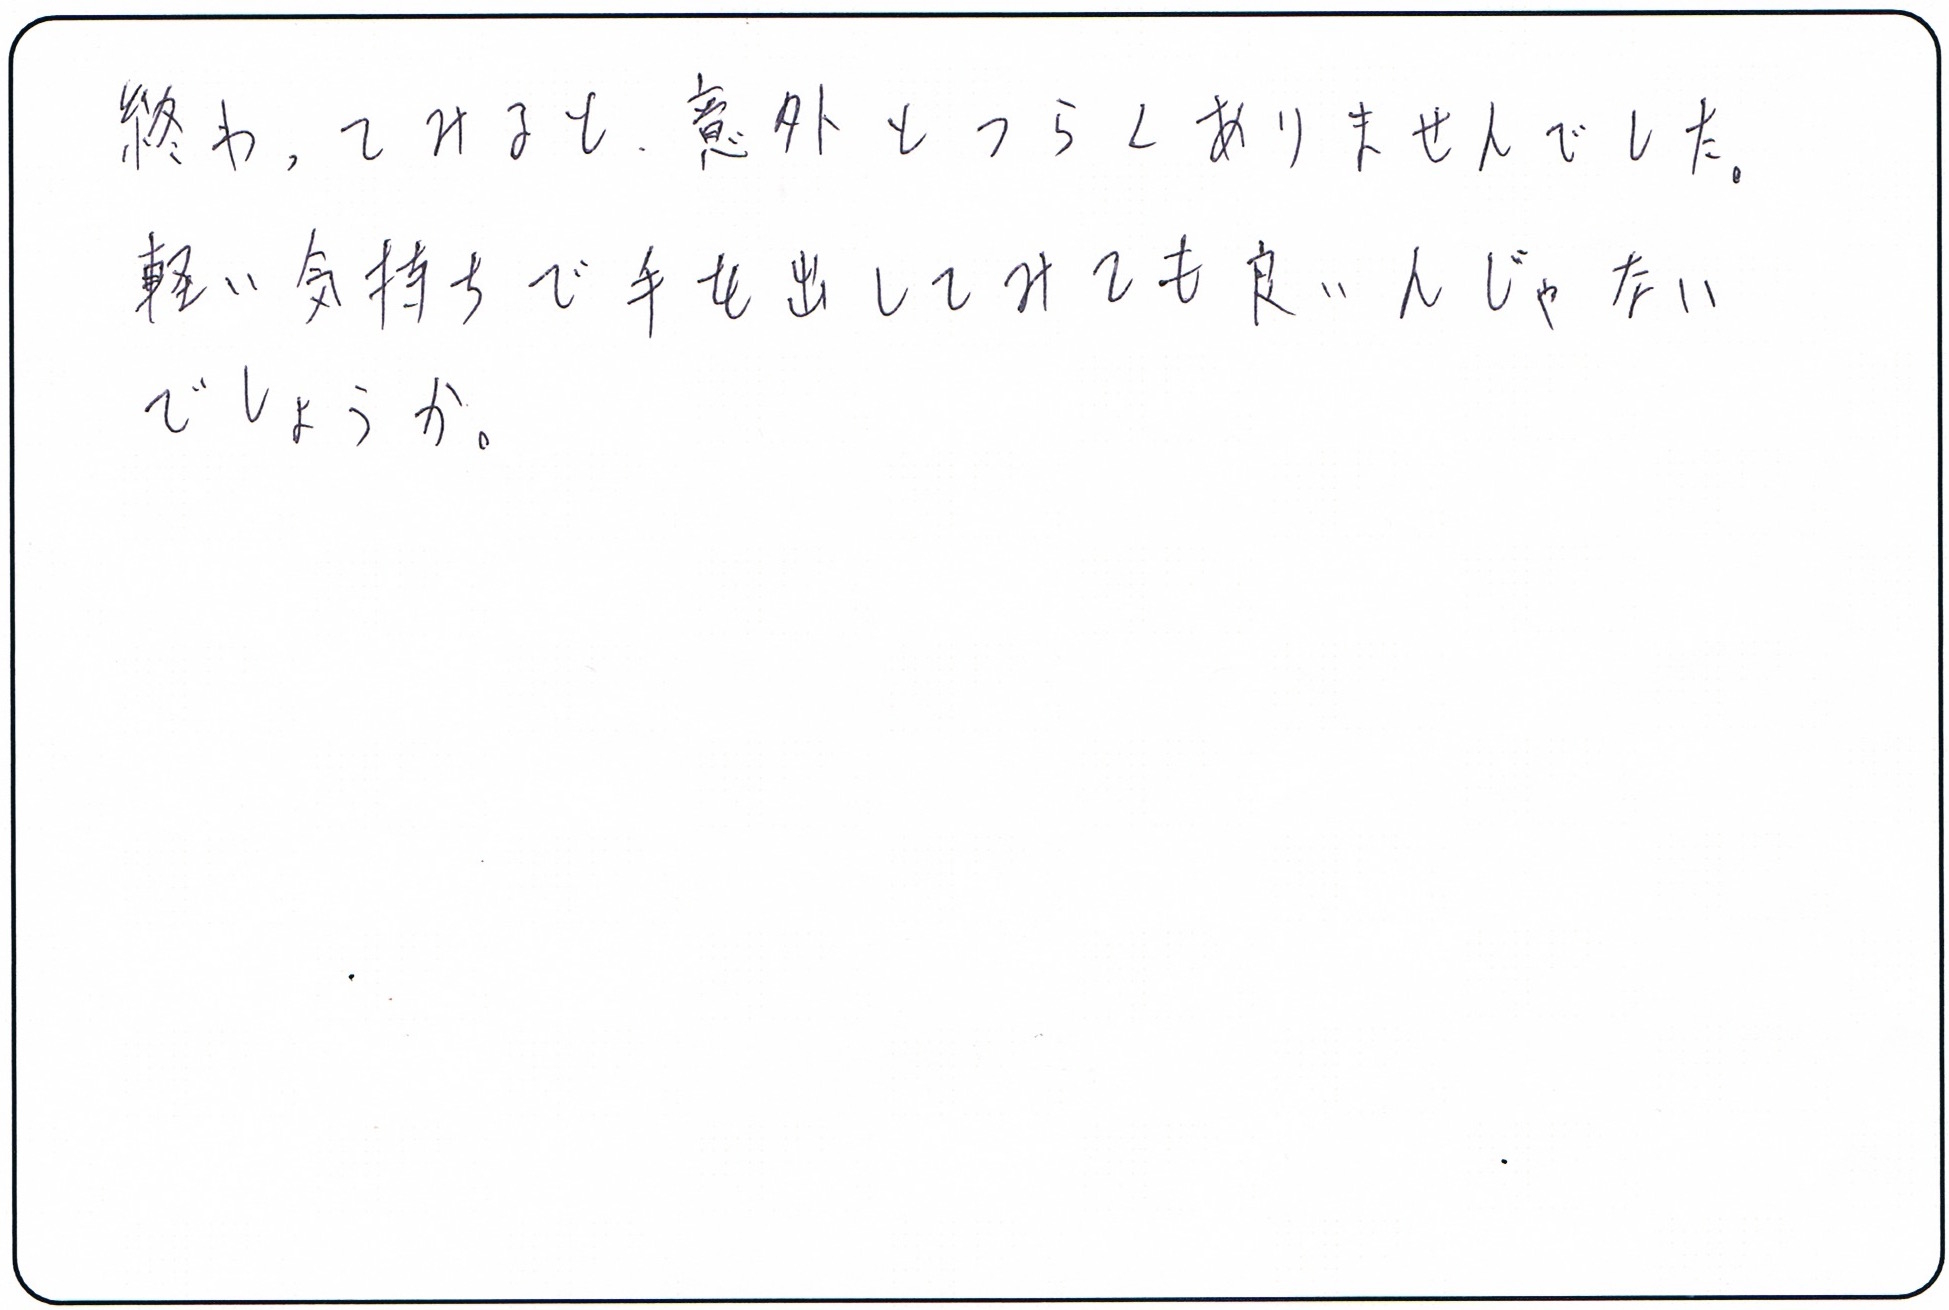 終わってみると、意外とつらくありませんでした。
軽い気持ちで手を出してみても良いんじゃない
でしょうか。